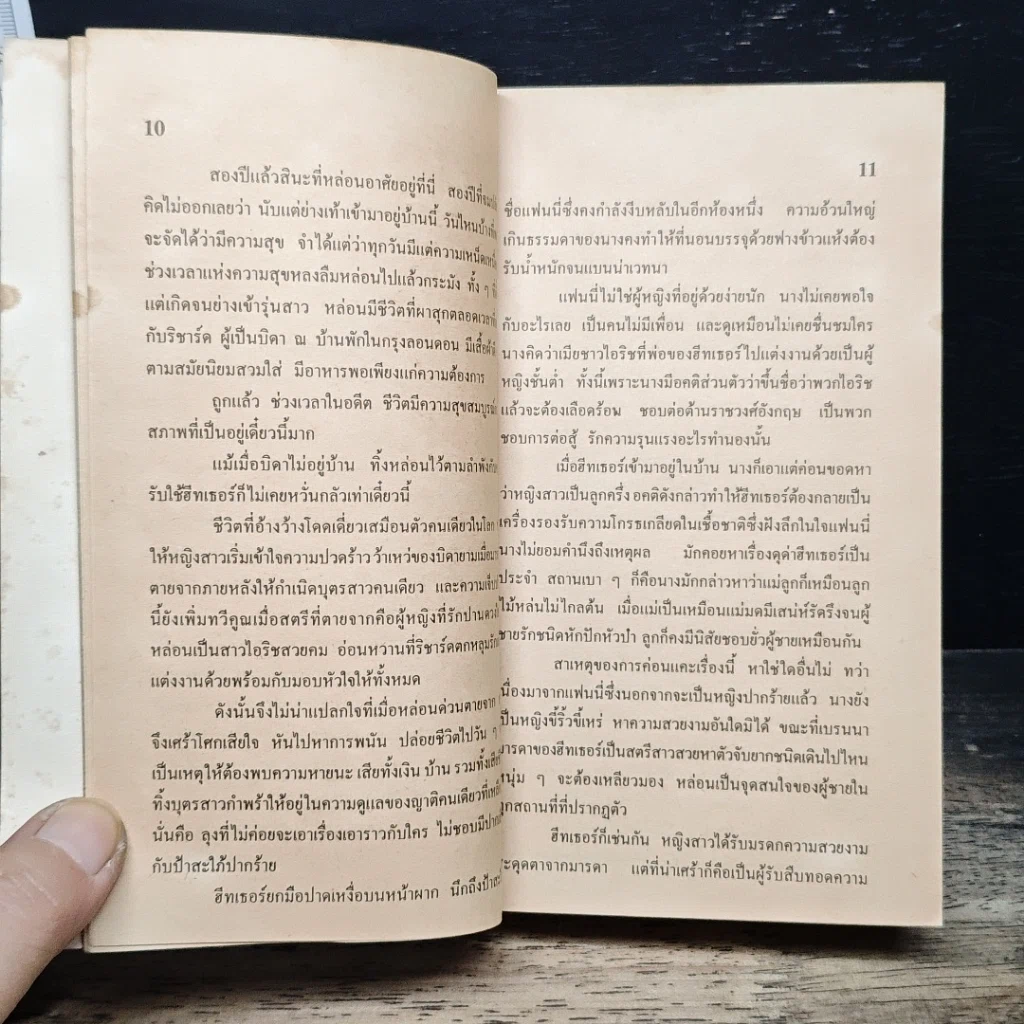 10
สองปีแล้วสินะที่หล่อนอาศัยอยู่ที่นี่ สองปีที่
คิดไม่ออกเลยว่า นับแต่ย่างเท้าเข้ามาอยู่บ้านนี้ วันไหนบ้าง
จะจัดได้ว่ามีความสุข จำได้แต่ว่าทุกวันมีแต่ความ
ช่วงเวลาแห่งความสุขหลงลืมหล่อนไปแล้วกระมัง ทั้ง ๆ
แต่เกิดจนย่างเข้ารุ่นสาว หล่อนมีชีวิตที่ผาสุกตลอดเวลา
กับริชาร์ด ผู้เป็นบิดา ณ บ้านพักในกรุงลอนดอน มีเสื้อผ้า
ตามสมัยนิยมสวมใส่ มีอาหารพอเพียงแก่ความต้องการ
ถูกแล้ว ช่วงเวลาในอดีต ชีวิตมีความสุขสมบูรณ์
สภาพที่เป็นอยู่เดี๋ยวนี้มาก
แม้เมื่อบิดาไม่อยู่บ้าน ทิ้งหล่อนไว้ตามลำพัง
รับใช้ฮีทเธอร์ก็ไม่เคยหวั่นกลัวเท่าเดี๋ยวนี้
ชีวิตที่อ้างว้างโดดเดี่ยวเสมือนตัวคนเดียวในโลก
ให้หญิงสาวเริ่มเข้าใจความปวดร้าวว้าเหว่ของบิดายามเมื่อ
ตายจากภายหลังให้กำเนิดบุตรสาวคนเดียว และความ
นี้ยังเพิ่มทวีคูณเมื่อสตรีที่ตายจากคือผู้หญิงที่รักปาน
หล่อนเป็นสาวไอริชสวยคม อ่อนหวานที่ริชาร์ดตกหลุมรัก
แต่งงานด้วยพร้อมกับมอบหัวใจให้ทั้งหมด
ดังนั้นจึงไม่น่าแปลกใจที่เมื่อหล่อนด่วนตายจาก
จึงเศร้าโศกเสียใจ หันไปหาการพนัน ปล่อยชีวิตไปวัน ๆ
เป็นเหตุให้ต้องพบความหายนะ เสียทั้งเงิน บ้าน รวมทั้ง
ทิ้งบุตรสาวกำพร้าให้อยู่ในความดูแลของญาติคนเดียวที่
นั่นคือ ลุงที่ไม่ค่อยจะเอาเรื่องเอาราวกับใคร ไม่ชอบมี
กับป้าสะใภ้ปากร้าย
ฮีทเธอร์ยกมือปาดเหงื่อบนหน้าผาก นึกถึงป้า
11
ชื่อแฟนนี่ซึ่งคงกำลังงีบหลับในอีกห้องหนึ่ง ความอ้วนใหญ่
เกินธรรมดาของนางคงทำให้ที่นอนบรรจุด้วยฟางข้าวแห้งต้อง
รับน้ำหนักจนแบนน่าเวทนา
แฟนนี่ไม่ใช่ผู้หญิงที่อยู่ด้วยง่ายนัก นางไม่เคยพอใจ
กับอะไรเลย เป็นคนไม่มีเพื่อน และดูเหมือนไม่เคยชื่นชมใคร
นางคิดว่าเมียชาวไอริชที่พ่อของฮีทเธอร์ไปแต่งงานด้วยเป็นผู้
หญิงชั้นต่ำ ทั้งนี้เพราะนางมีอคติส่วนตัวว่าขึ้นชื่อว่าพวกไอริช
แล้วจะต้องเลือดร้อน ชอบต่อต้านราชวงศ์อังกฤษ เป็นพวก
ชอบการต่อสู้ รักความรุนแรงอะไรทำนองนั้น
เมื่อฮีทเธอร์เข้ามาอยู่ในบ้าน นางก็เอาแต่ค่อนขอดหา
ว่าหญิงสาวเป็นลูกครึ่ง อคติดังกล่าวทำให้ฮีทเธอร์ต้องกลายเป็น
เครื่องรองรับความโกรธเกลียดในเชื้อชาติซึ่งฝังลึกในใจแฟนนี่
นางไม่ยอมคำนึงถึงเหตุผล มักคอยหาเรื่องดุด่าฮีทเธอร์เป็น
ประจำ สถานเบา ๆ ก็คือนางมักกล่าวหาว่าแม่ลูกก็เหมือนลูก
ไม้หล่นไม่ไกลต้น เมื่อแม่เป็นเหมือนแม่มดมีเสน่ห์รัดรึงจนผู้
ชายรักชนิดหักปักหัวปำ ลูกก็คงมีนิสัยชอบยั่วผู้ชายเหมือนกัน
สาเหตุของการค่อนแคะเรื่องนี้ หาใช่ใดอื่นไม่ ทว่า
เนื่องมาจากแฟนนี่ซึ่งนอกจากจะเป็นหญิงปากร้ายแล้ว นางยัง
เป็นหญิงขี้ริ้วขี้เหร่ หาความสวยงามอันใดมิได้ ขณะที่เบรนนา
มารดาของฮีทเธอร์เป็นสตรีสาวสวยหาตัวจับยากชนิดเดินไปไหน
หนุ่ม ๆ จะต้องเหลียวมอง หล่อนเป็นจุดสนใจของผู้ชายใน
ทุกสถานที่ที่ปรากฏตัว
ฮีทเธอร์ก็เช่นกัน หญิงสาวได้รับมรดกความสวยงาม
สะดุดตาจากมารดา แต่ที่น่าเศร้าก็คือเป็นผู้รับสืบทอดความ